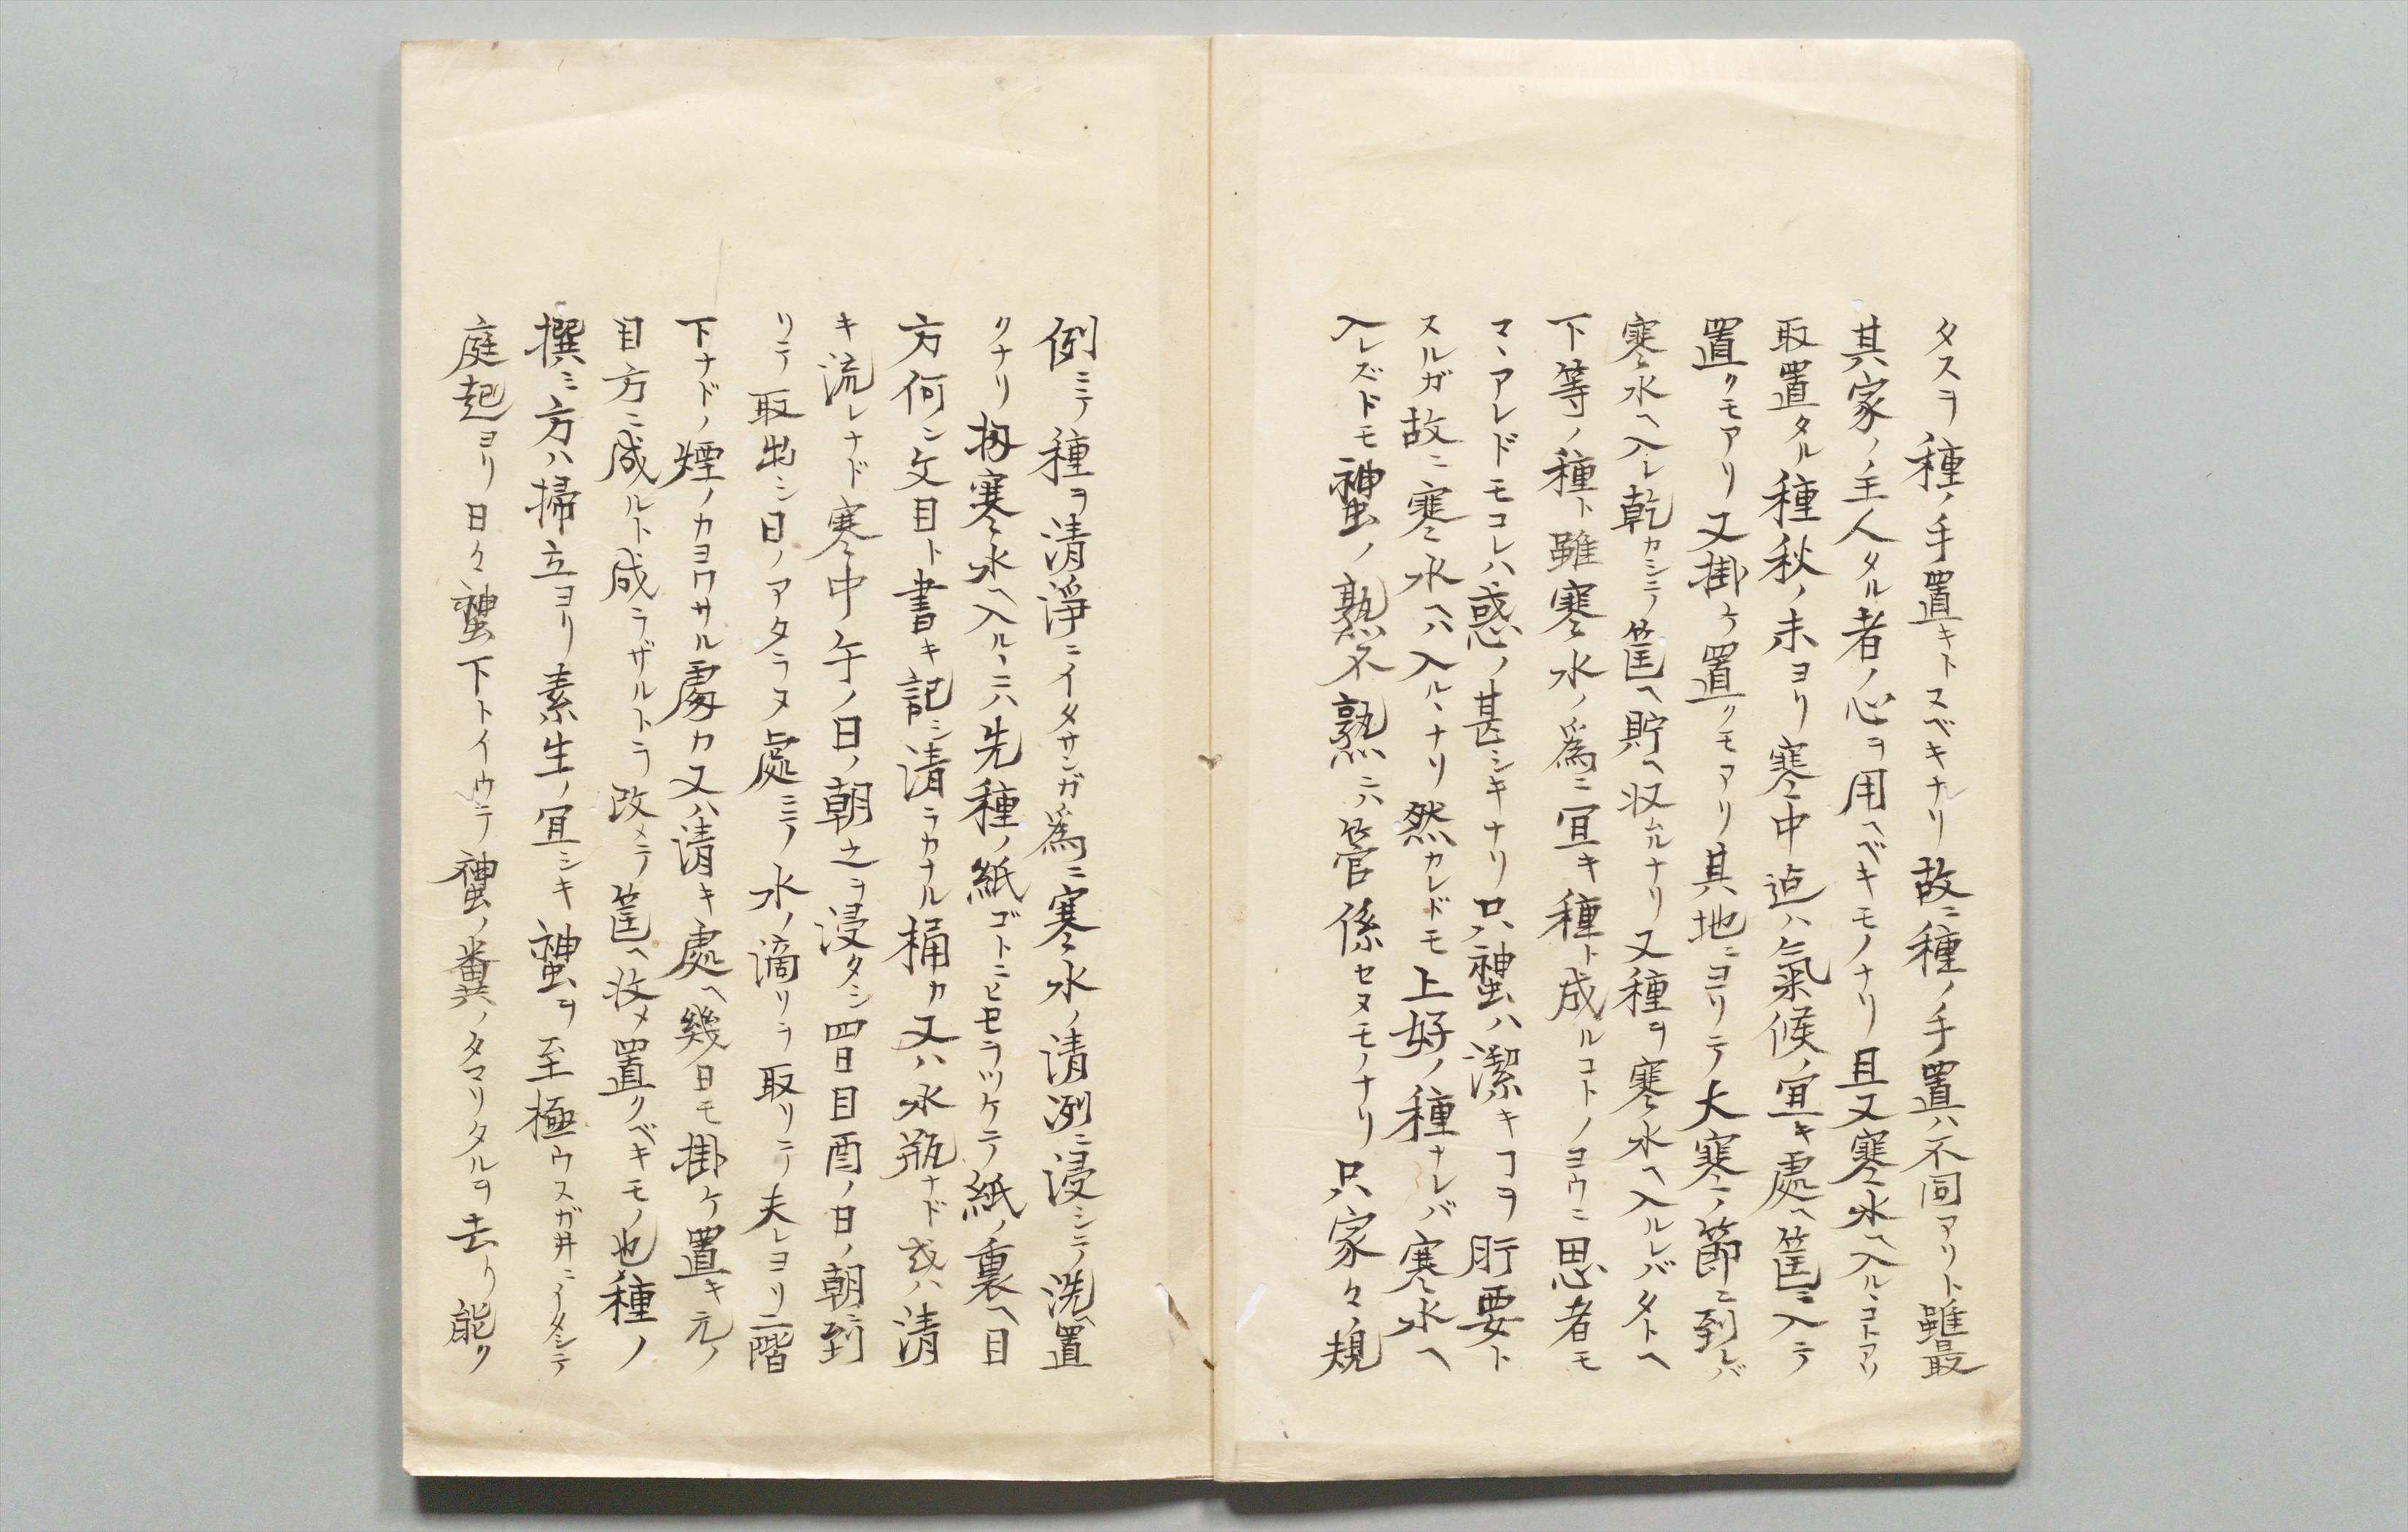 タスヲ種ノ手置キトスベキナリ故ニ種ノ手置ハ不同アリト雖最
其家ノ主人タル者ノ心ヲ用ヘベキモノナリ且又寒水ヘ入ルヽコトアリ
取置タル種秋ノ末ヨリ寒中迠ハ氣候ノ宜キ處ヘ筐ニ入テ
置クモアリ又掛ケ置クモアリ其地ニヨリテ大寒ノ節ニ到レバ
寒水ヘ入レ乾カシテ筐ヘ貯ヘ収ムルナリ又種ヲ寒水ヘ入ルレバタトヘ
下等ノ種ト雖寒水ノ爲ニ宜キ種ト成ルコトノヨウニ思者モ
マヽアレドモコレハ惑ノ甚シキナリ只神虫ハ潔キコヲ肝要ト
スルガ故ニ寒水ヘハ入ルヽナリ然カレドモ上好ノ種ナレバ寒水ヘ
入レズトモ神虫ノ熟不熟ニハ管係セヌモノナリ只家々ノ規
例ニテ種ヲ清淨ニイタサンガ爲ニ寒水ノ清冽ニ浸シテ洗ヘ置
クナリ扨寒水ヘ入ルヽニハ先種ノ紙ゴトニヒモヲツケテ紙ノ裏ヘ目
方何ン文目ト書キ記シ清ラカナル桶カ又ハ水瓶ナド或ハ清
キ流レナド寒中午ノ日ノ朝之ヲ浸タシ四日目酉ノ日ノ朝ニ到
リテ取出シ日ノアタラヌ處ニテ水ノ滴リヲ取リテ夫レヨリ二階
下ナドノ煙ノカヨワサル處カ又ハ清キ處ヘ幾日モ掛ケ置キ元ノ
目方ニ成ルト成ラザルトヲ改メテ筐ヘ收メ置クベキモノ也種ノ
撰ミ方ハ掃立ヨリ素生ノ宜シキ神虫ヲ至極ウスガ井ニイタシテ
庭起ヨリ日々蚕下トイウテ蚕ノ糞ノタマリタルヲ去リ能ク